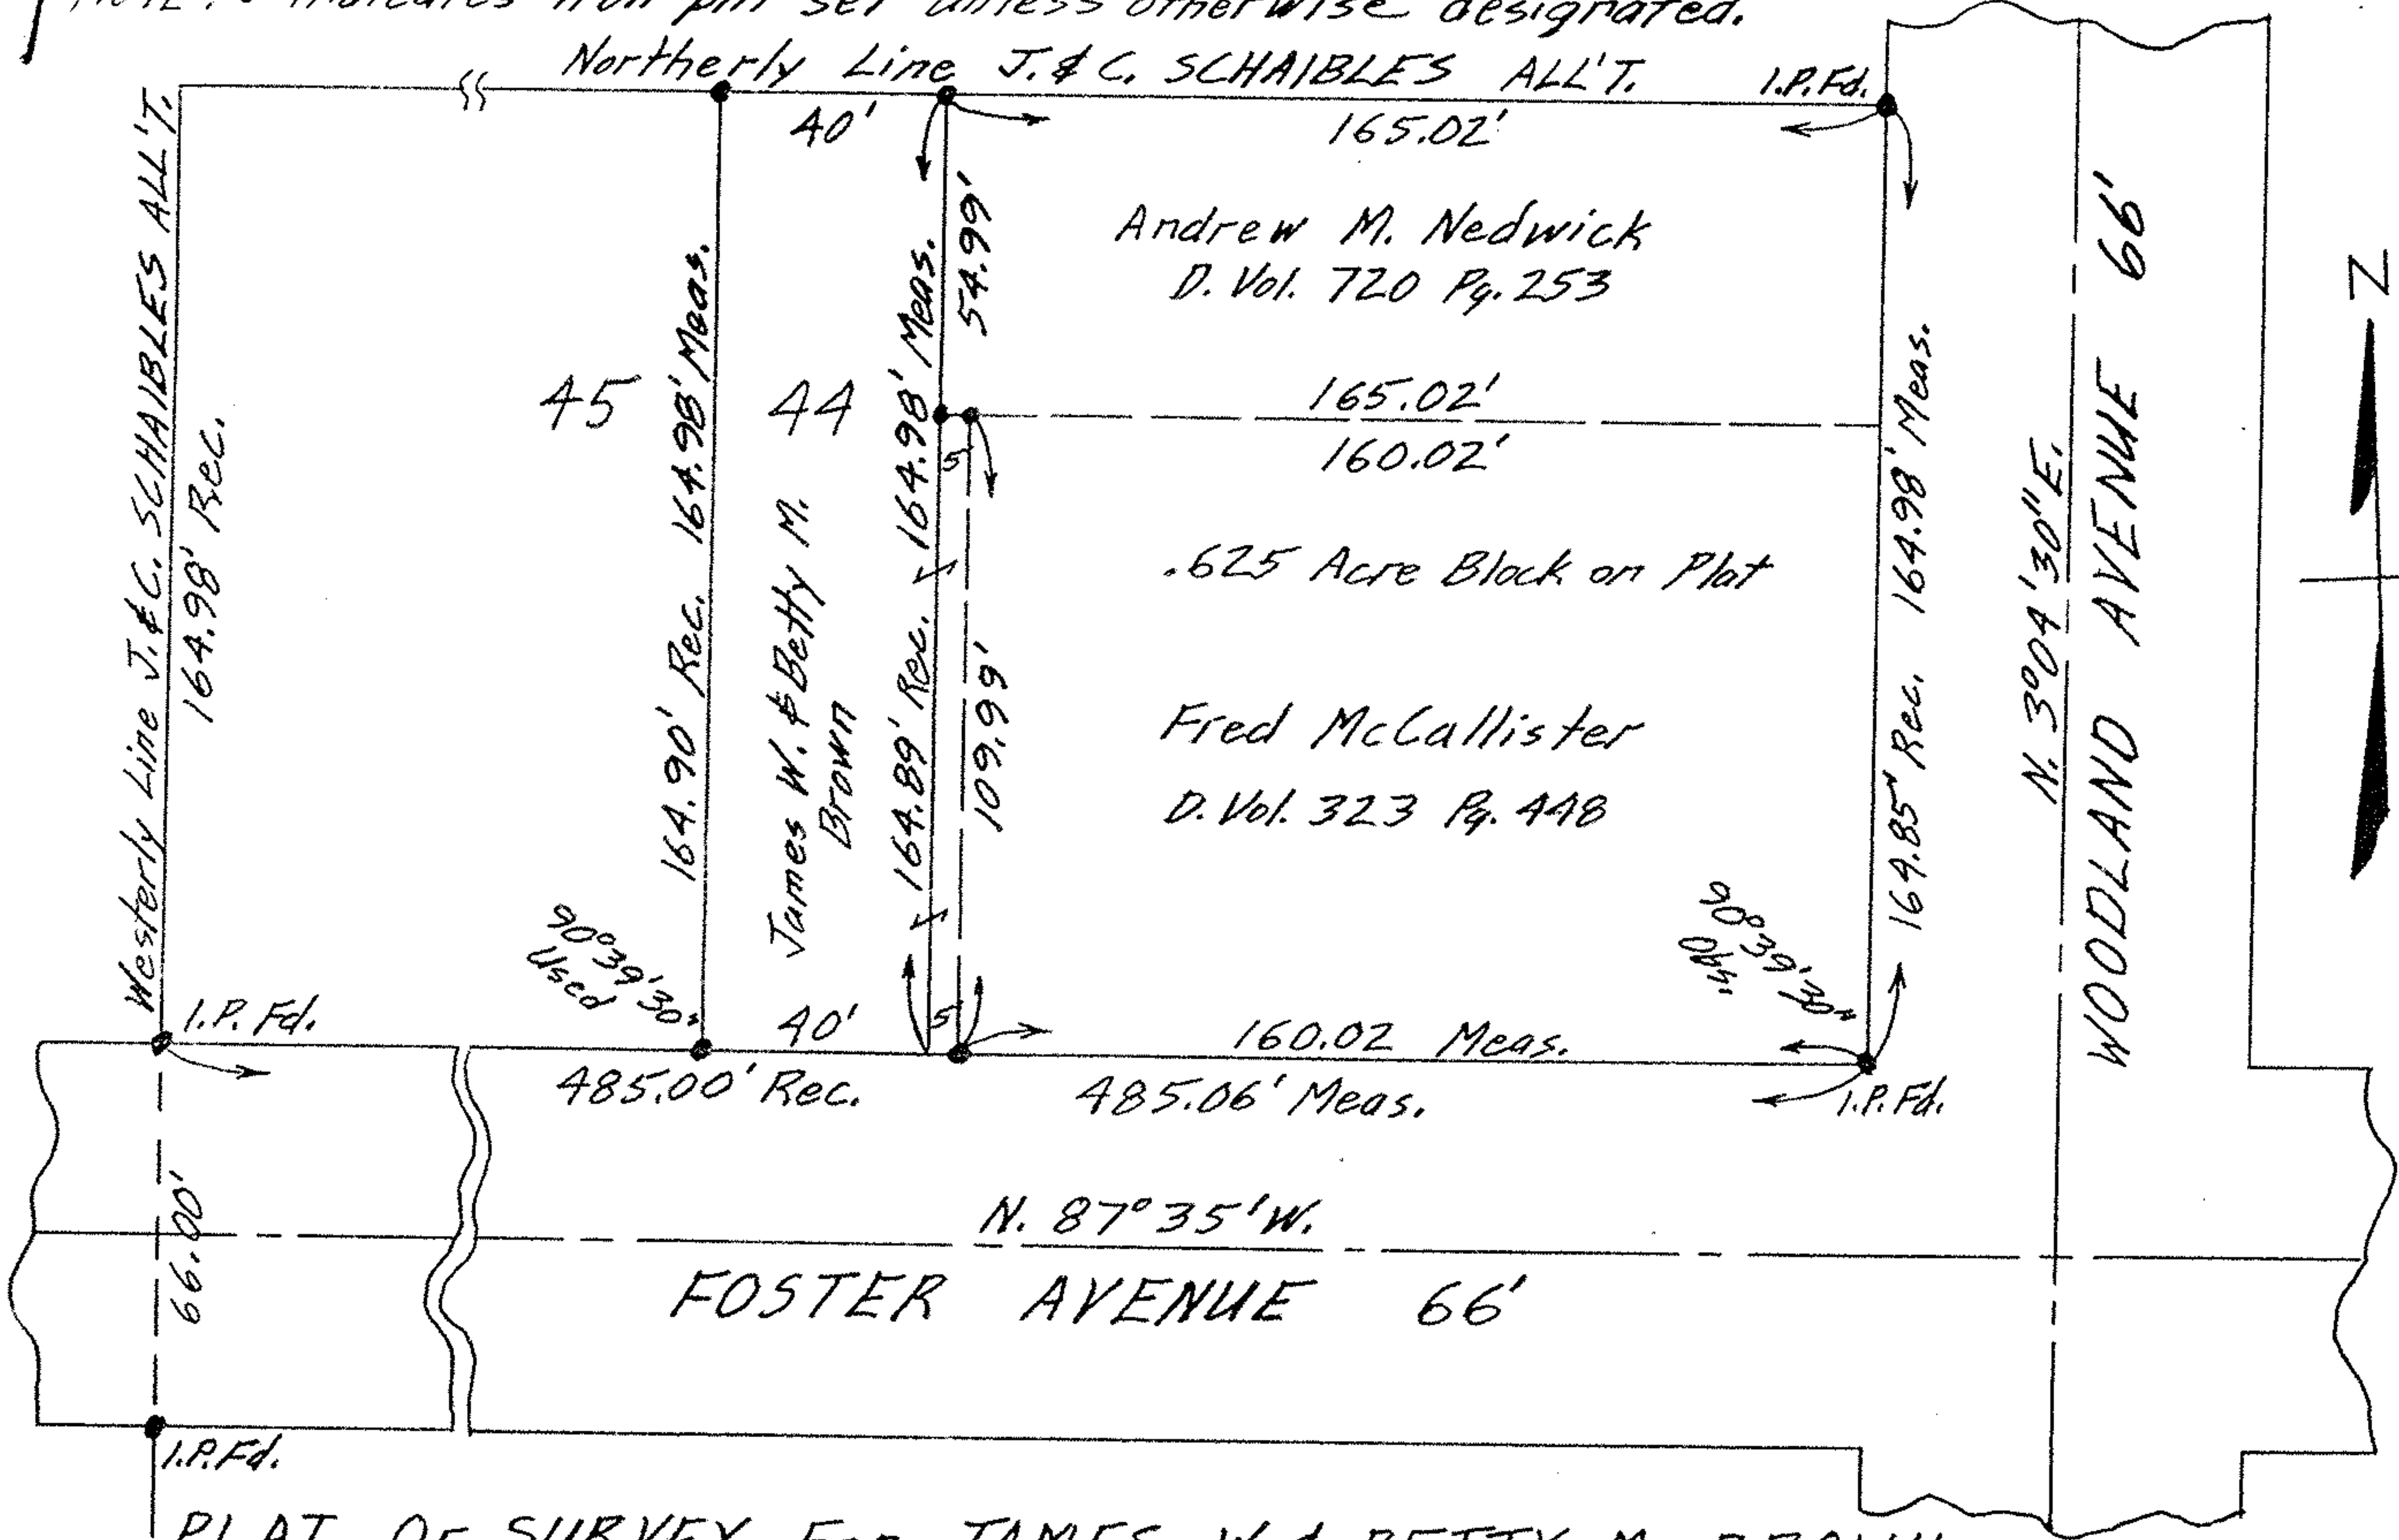 NOTE: • indicates iron pin set unless otherwise designated.
Northerly Line J. & C. SCHAIBLES ALL'T.
I.P. Fd.
40'
165.02'
Westerly Line J. & C. SCHAIBLES ALL'T.
164.98' Rec.
45
164.90' Rec. 164.98' Meas.
44
James W. & Betty M.
Brown
164.89' Rec. 164.98' Meas.
54.99'
Andrew M. Nedwick
D. Vol. 720 Pg. 253
165.02'
5'
160.02'
.625 Acre Block on Plat
109.99'
Fred McCallister
D. Vol. 323 Pg. 448
164.85' Rec. 164.98' Meas.
N. 3°04'30" E.
WOODLAND AVENUE 66'
N
90°39'30"
Used
90°39'30"
Obs.
I.P. Fd.
40'
5'
160.02 Meas.
485.00' Rec.
485.06' Meas.
I.P. Fd.
66.00'
N. 87°35' W.
FOSTER AVENUE 66'
I.P. Fd.
PLAT OF SURVEY FOR JAMES W. & BETTY M. BROWN